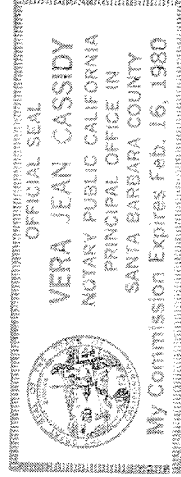 OFFICIAL SEAL
VERA JEAN CASSIDY
NOTARY PUBLIC CALIFORNIA
PRINCIPAL OFFICE IN
SANTA BARBARA COUNTY
My Commission Expires Feb. 16, 1980